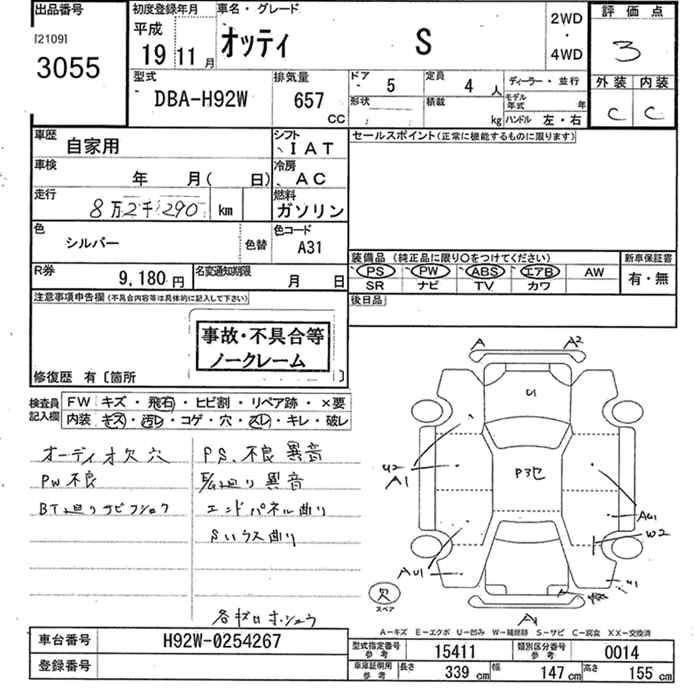 出品番号 初度登録年月 車名・グレード 2WD ・ 4WD 評価点
[2109]
3055
平成 19 11 月 オッティ S 3
外装 内装
C C
型式 排気量 ドア 5 定員 4 人 ディーラー・並行
DBA-H92W 657 CC 形状 積載 kg モデル年式 年
ハンドル 左・右
車歴 自家用 シフト IAT セールスポイント(正常に機能するものに限ります)
車検 年 月( 日) 冷房 AC
走行 8万2千290 km 燃料 ガソリン
色 シルバー 色替 色コード A31
装備品 (純正品に限り○をつけてください) 新車保証書
PS PW ABS エアB AW 有・無
SR ナビ TV カワ
R券 9,180 円 名変通知期限 月 日
後日品
注意事項申告欄 (不具合内容等は具体的に記入して下さい)
事故・不具合等
ノークレーム
修復歴 有 〔箇所 〕
検査員記入欄 FW キズ・飛石・ヒビ割・リペア跡・×要
内装 キズ・汚レ・コゲ・穴・スレ・キレ・破レ
オーディオ欠 穴 PS.不良 異音
PW不良 E/G廻り 異音
BT廻りサビフショク エンドパネル曲り
Sハウス曲り
A A2
U
U2
A1
P3セ
AU1
W2
AU1
U1
A1
欠
スペア
A-キズ E-エクボ U-凹み W-補修跡 S-サビ C-腐食 XX-交換済
車台番号 H92W-0254267
登録番号
型式指定番号 参考 15411 類別区分番号 参考 0014
車庫証明用 参考 長さ 339 cm 幅 147 cm 高さ 155 cm